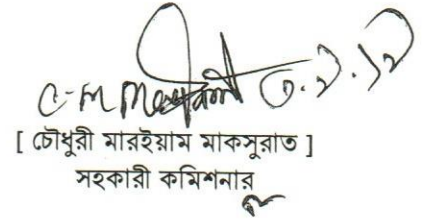 ৩.২.১২
[ চৌধুরী মারইয়াম মাকসুরাত ]
সহকারী কমিশনার